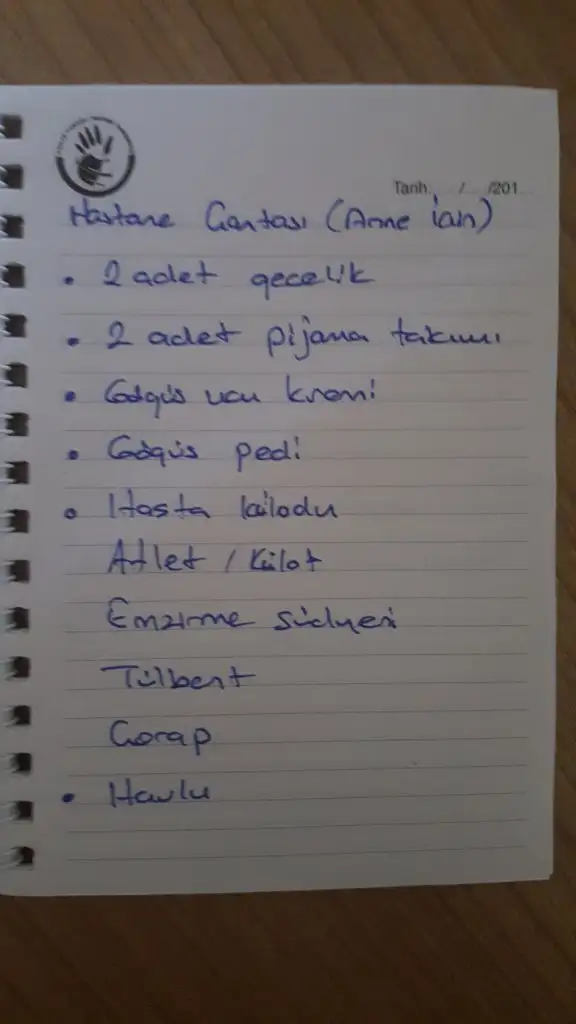 Tarih. / /201
Hastane Çantası (Anne için)
• 2 adet gecelik
• 2 adet pijama takımı
• Göğüs ucu kremi
• Göğüs pedi
• Hasta külodu
Atlet / Külot
Emzirme südyeni
Tülbent
Çorap
• Havlu